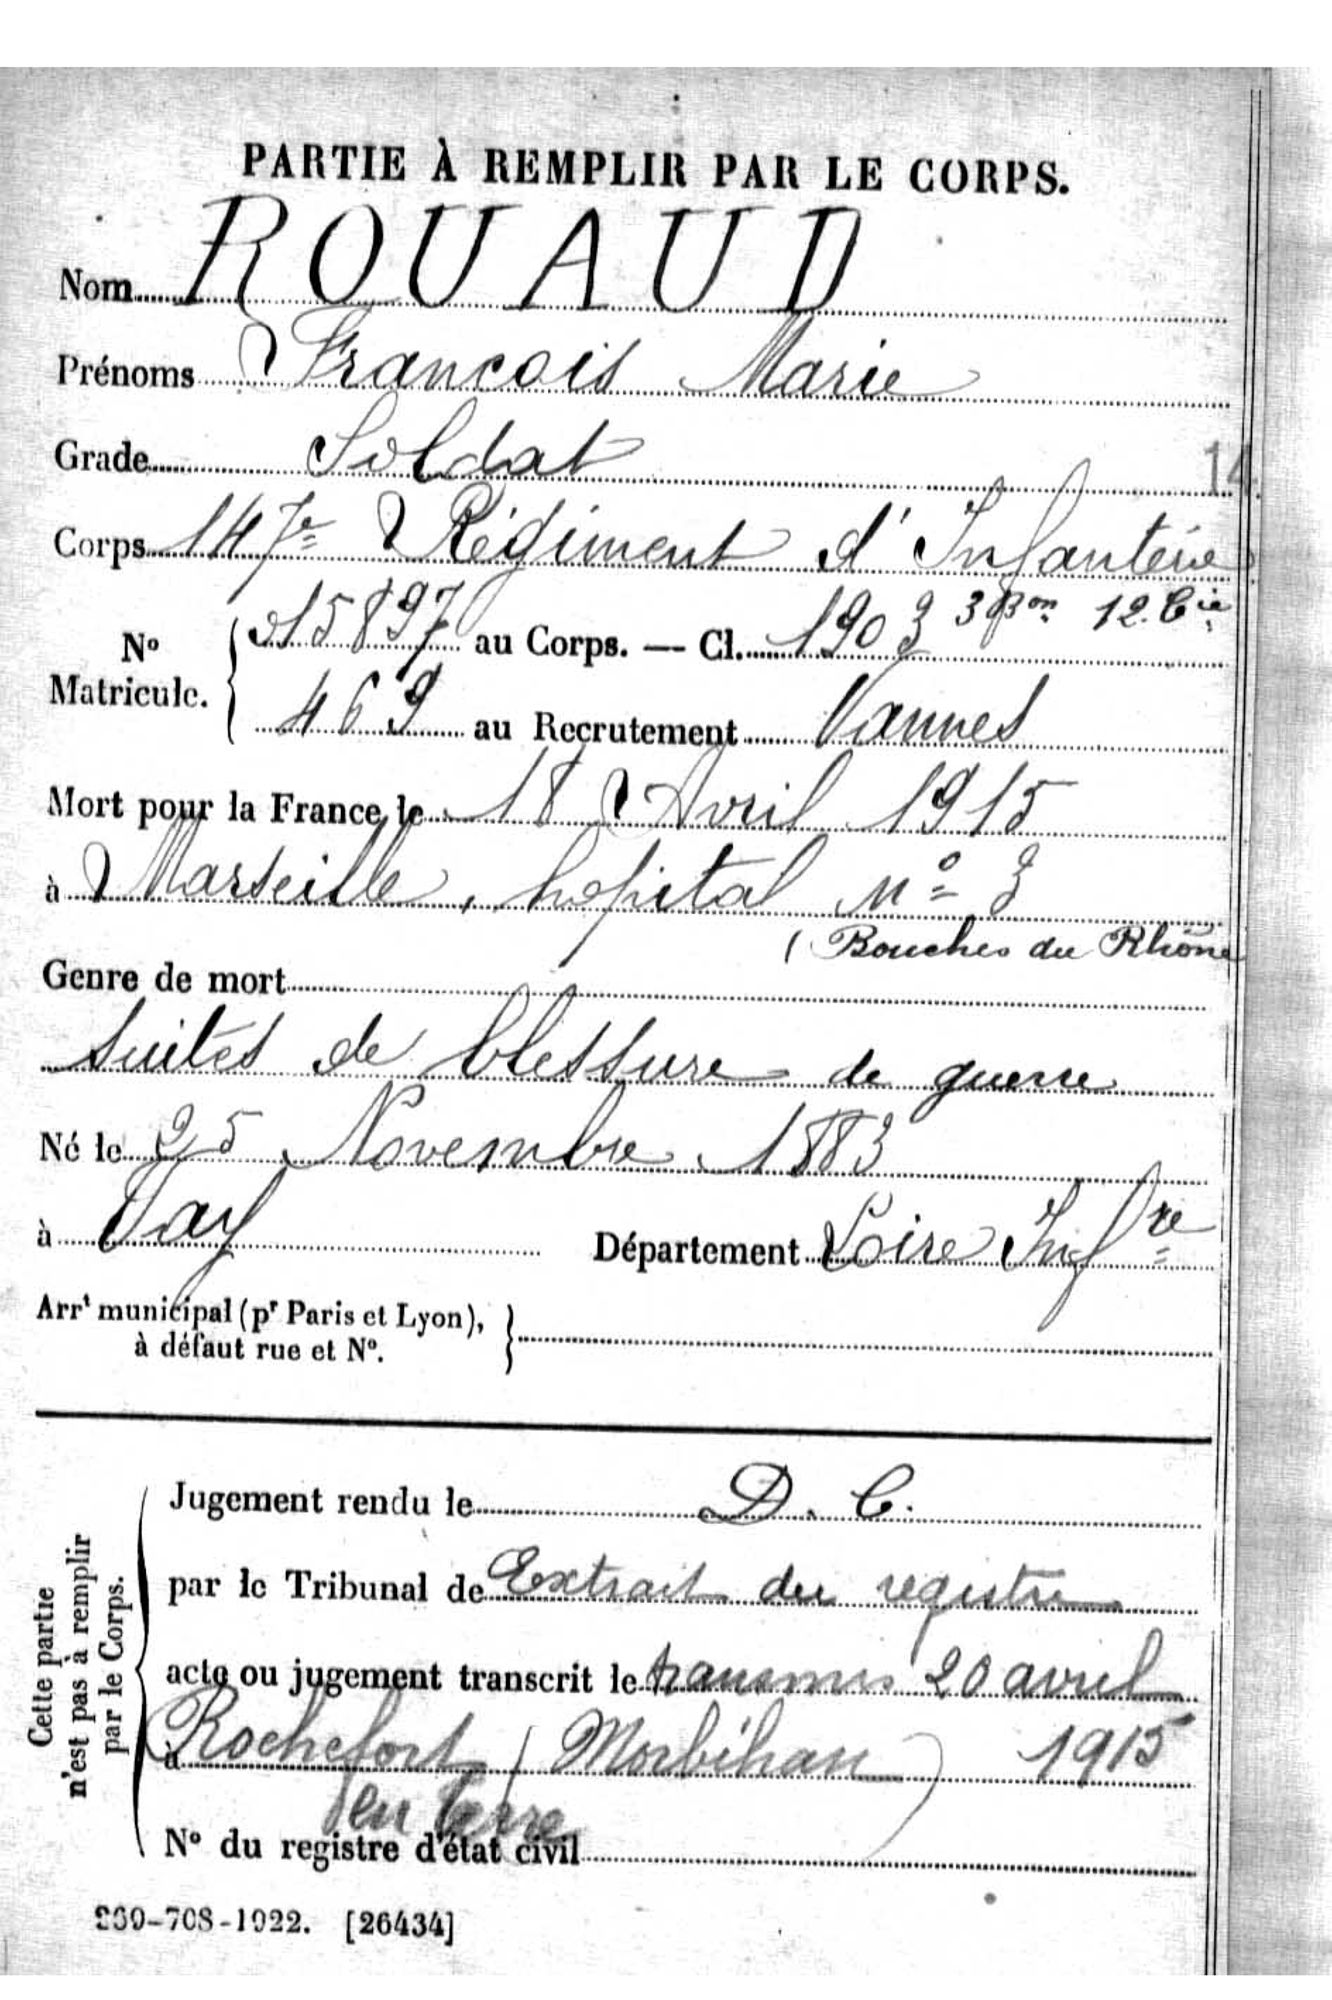 PARTIE À REMPLIR PAR LE CORPS.
Nom ROUAUD
Prénoms François Marie
Grade Soldat
14
Corps 147e Régiment d'Infanterie
3 Bon 12. Cie
No Matricule. 15897 au Corps. — Cl. 1903
469 au Recrutement Vannes
Mort pour la France le 18 Avril 1915
à Marseille, hopital No 3
(Bouches du Rhône
Genre de mort
suites de blessure de guerre
Né le 25 Novembre 1883
à Vay Département Loire Infre
Arrt municipal (pr Paris et Lyon), à défaut rue et No.
Cette partie n'est pas à remplir par le Corps.
Jugement rendu le D. C.
par le Tribunal de Extrait du registre
acte ou jugement transcrit le transmis 20 avril
à Rochefort (Morbihan) 1915
en terre
No du registre d'état civil
269-708-1922. [26434]